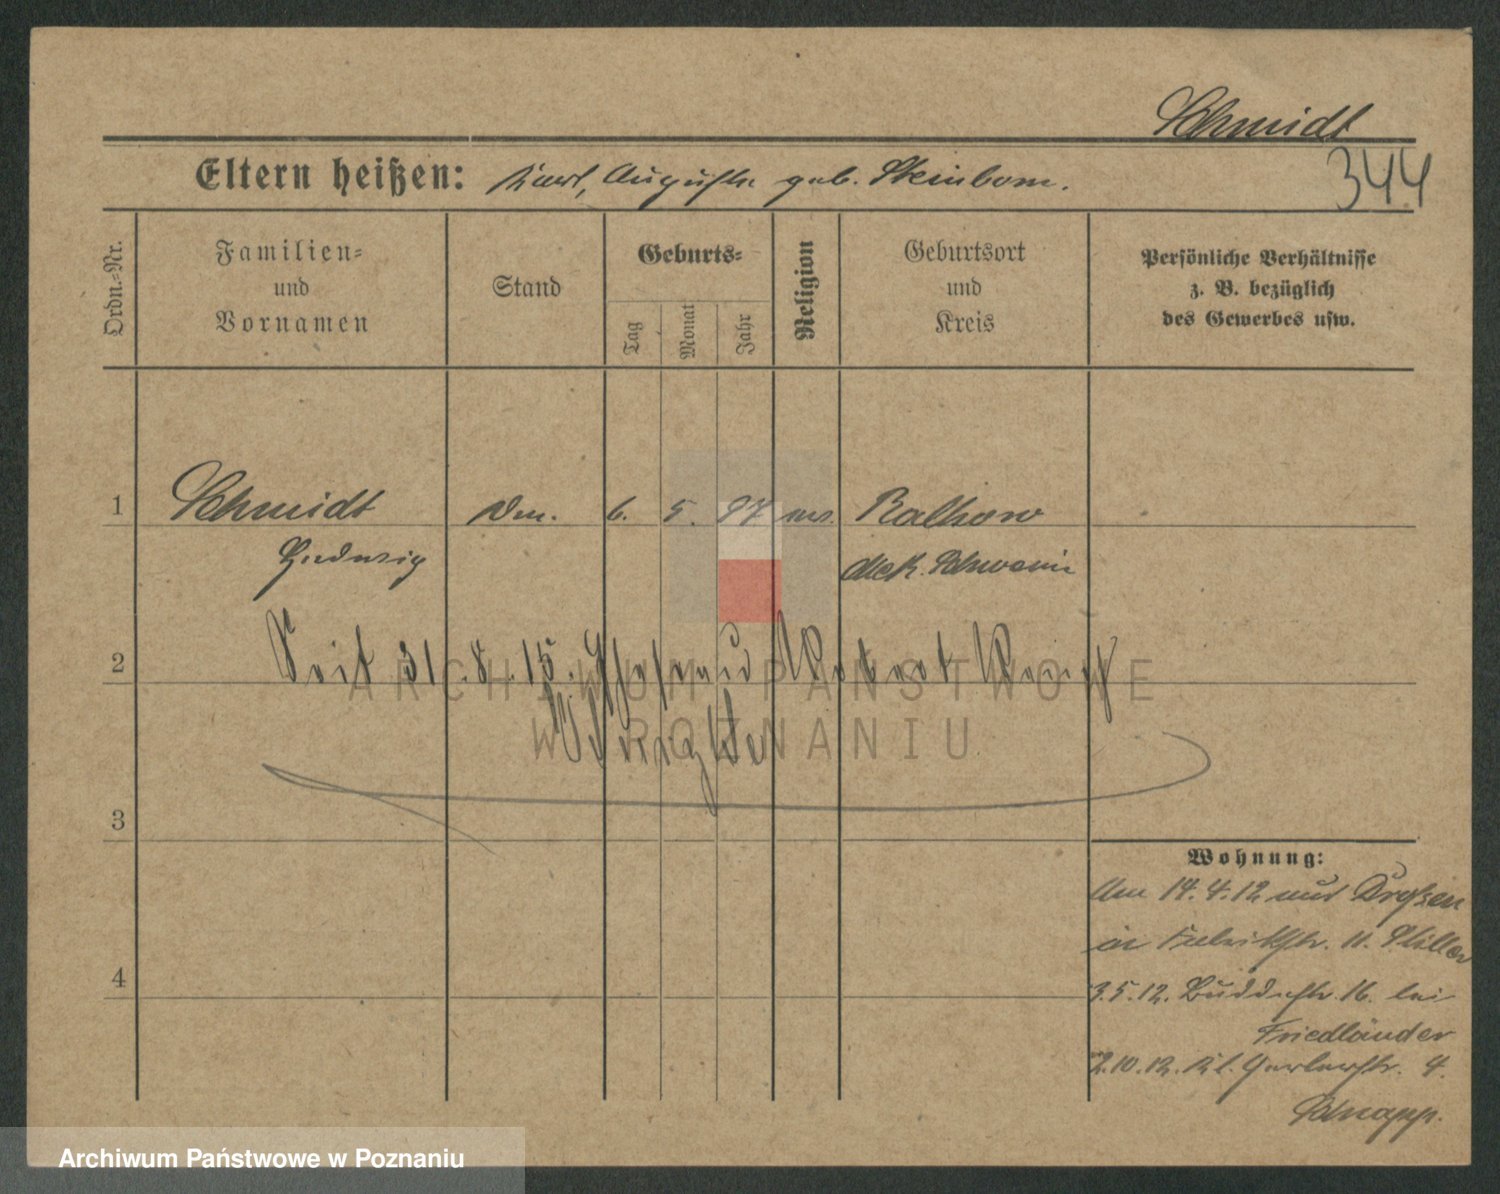 Schmidt
344
Eltern heißen: Karl, Auguste geb. Steinborn.
Ordn.-Nr.
Familien-
und
Vornamen
Stand
Geburts-
Tag
Monat
Jahr
Religion
Geburtsort
und
Kreis
Persönliche Verhältnisse
z. B. bezüglich
des Gewerbes usw.
1
Schmidt
6. 5. 97
Hedwig
Schwerin
2
Seit 31.8.15. Ehefrau
3
4
Wohnung:
14.4.12 aus
in 11.
3.5.12. Buddestr. 16. bei
Friedländer
2.10.12. Kl. Gerberstr. 4.
Schnapp.
ARCHIWUM PAŃSTWOWE
W POZNANIU
Archiwum Państwowe w Poznaniu